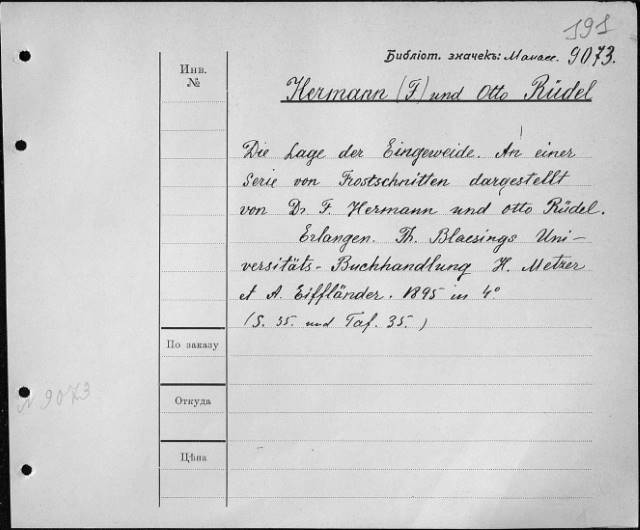 191
Библіот. значекъ: Манас. 9073.
Инв.
№
Hermann (F) und Otto Rüdel
Die Lage der Eingeweide. An einer
Serie von Frostschnitten dargestellt
von Dr F. Hermann und Otto Rüdel.
Erlangen. Th. Blaesings Uni-
versitäts-Buchhandlung H. Metzer
et A. Eiffländer. 1895 in 4°
(S. 35. und Taf. 35.)
По заказу
№ 9073
Откуда
Цѣна